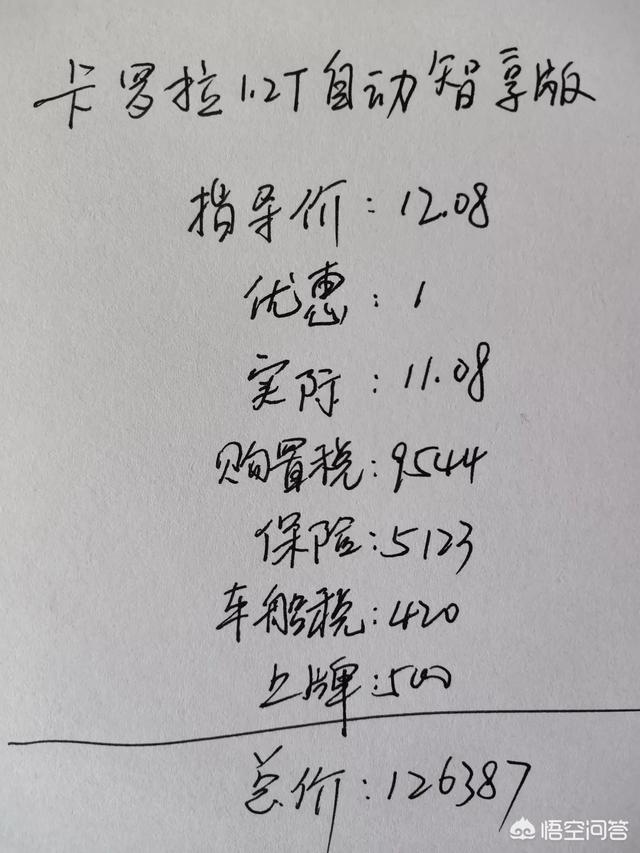 卡罗拉1.2T自动智享版
指导价:12.08
优惠:1
实际:11.08
购置税:9544
保险:5123
车船税:420
上牌:500
总价:126387
悟空问答